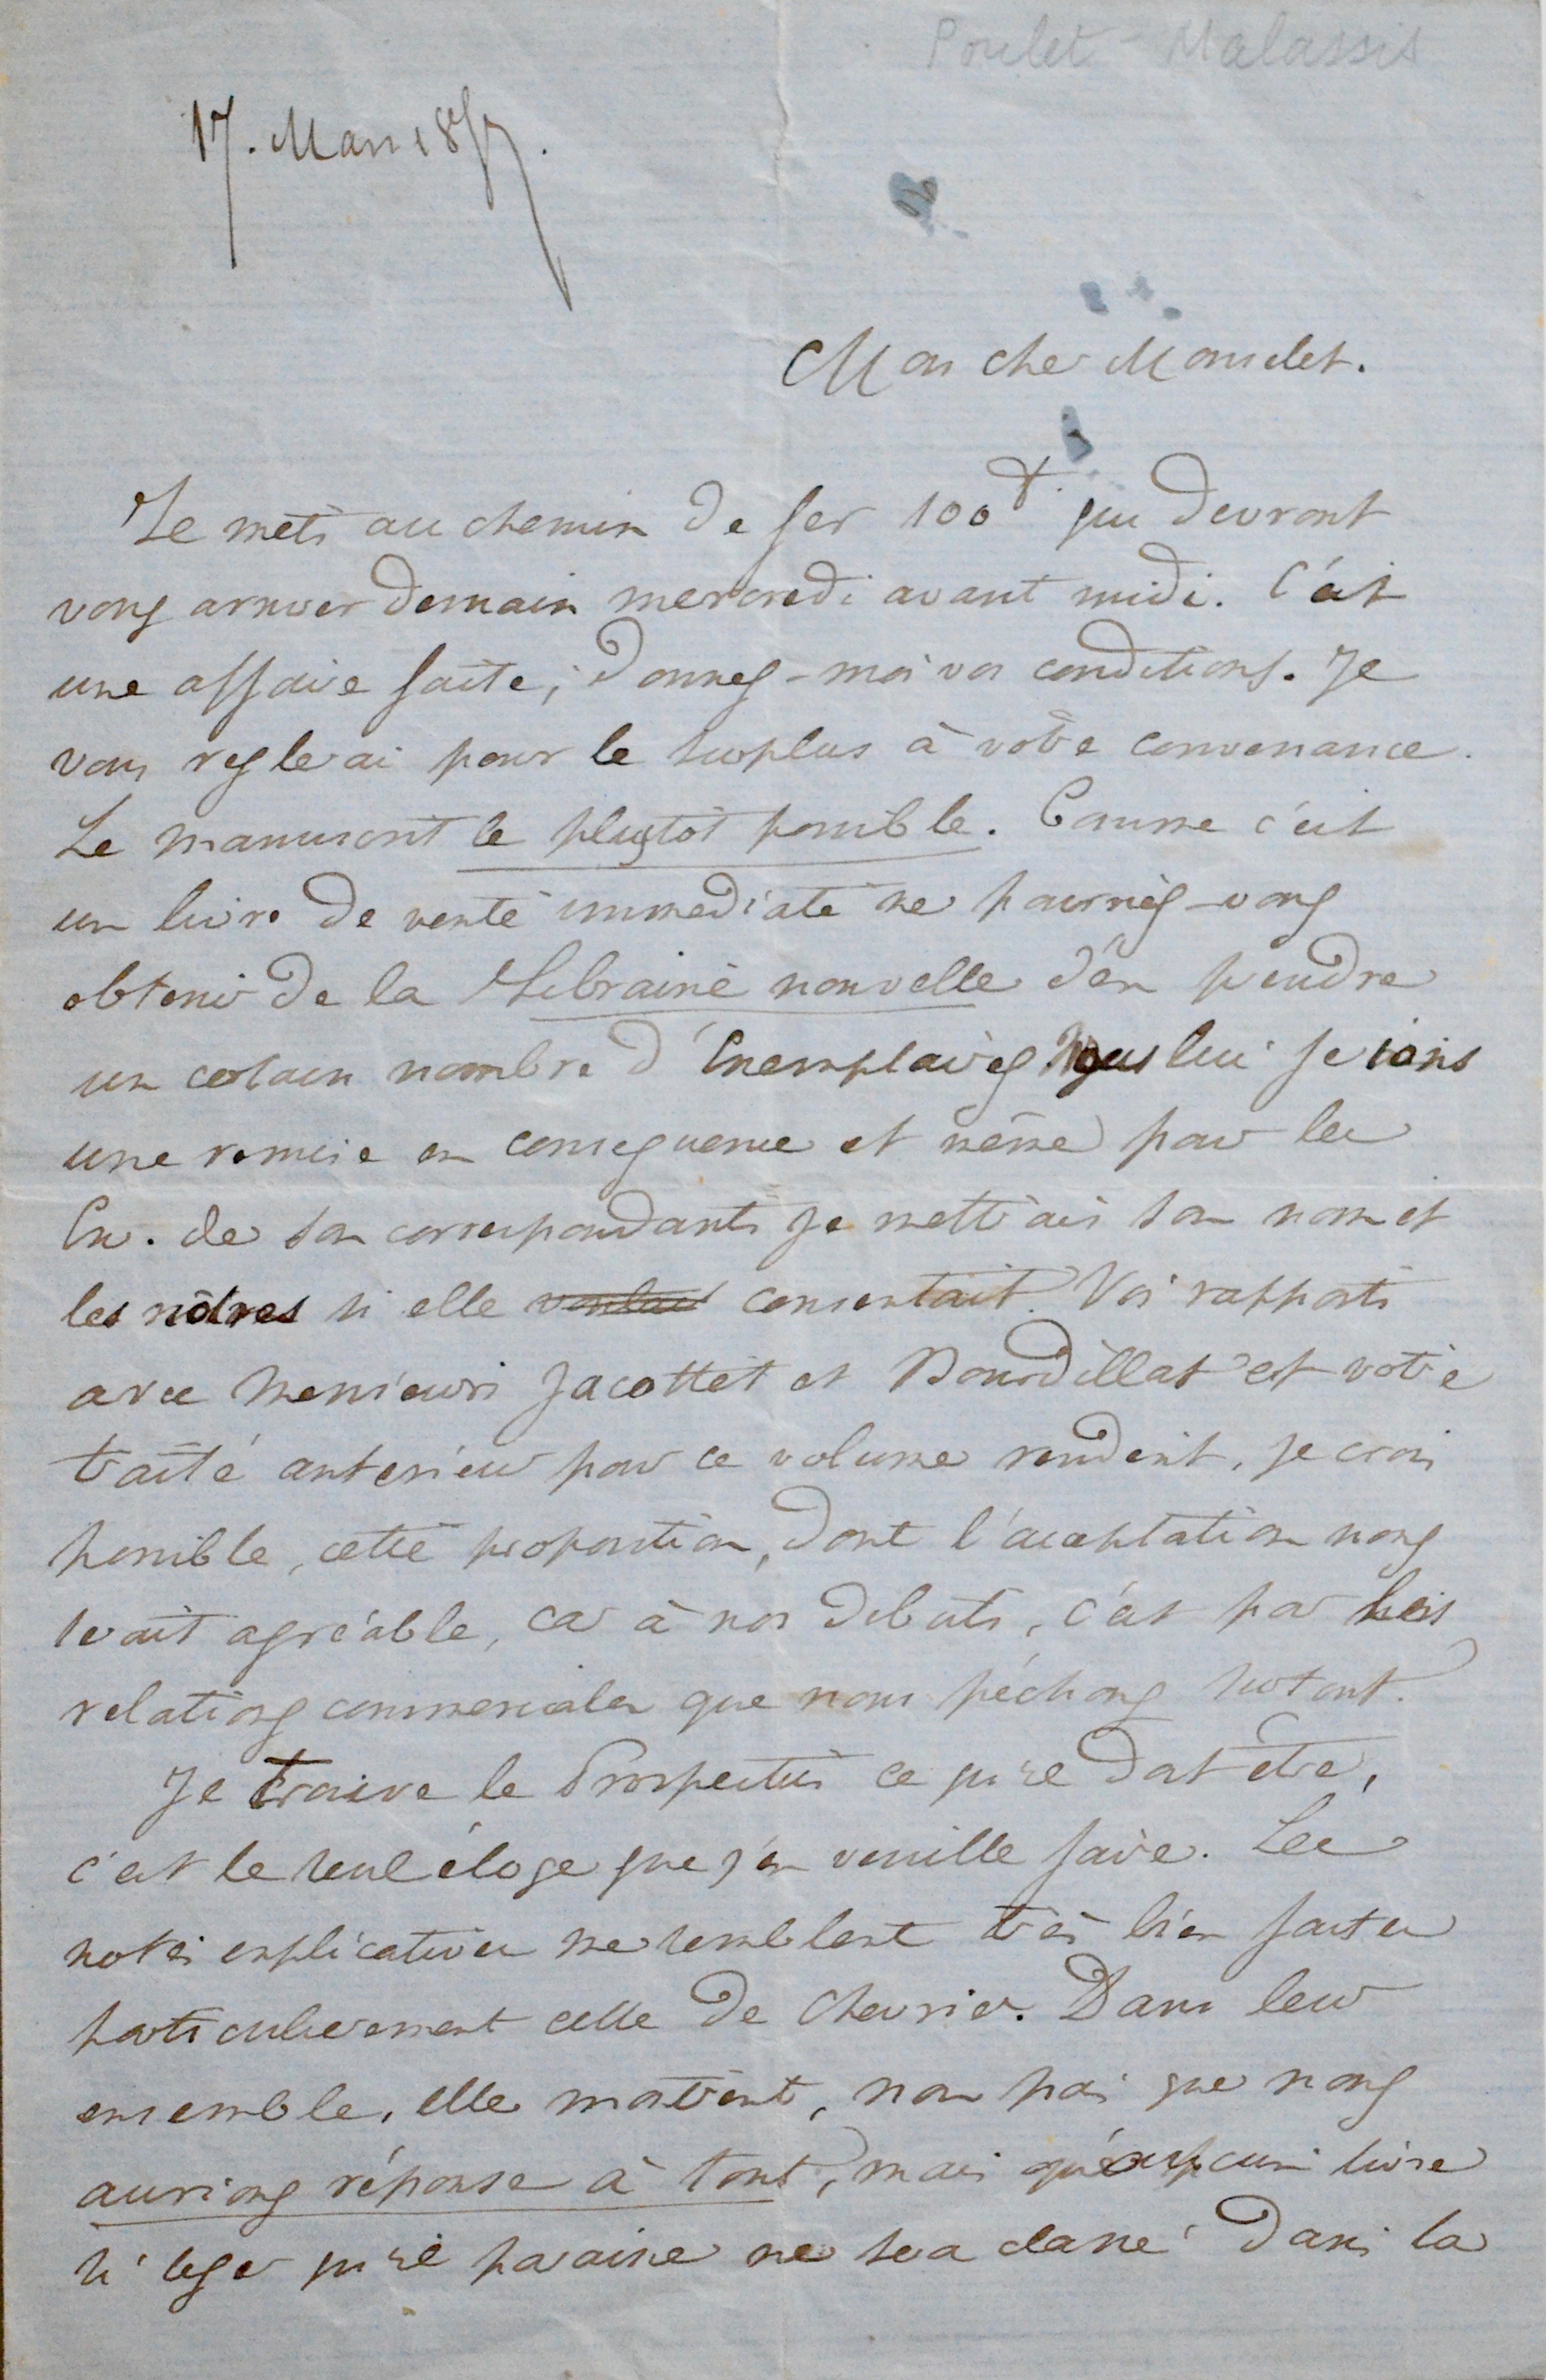 Poulet-Malassis
17. Mars 1857.
Mon cher Monselet.
Je mets au chemin de fer 100 f. qui devront
vous arriver demain mercredi avant midi. C'est
une affaire faite; donnez-moi vos conditions. Je
vous reglerai pour le surplus à votre convenance.
Le manuscrit le plustôt possible. Comme c'est
un livre de vente immediate ne pourriez-vous
obtenir de la Librairie nouvelle d'en prendre
un certain nombre d'Exemplaires Nous lui ferions
une remise en consequence et même pour les
Ex. de son correspondants je mettrais son nom et
les nôtres si elle voulait consentait. Vos rapports
avec Messieurs Jacottet et Bourdillat et votre
traité anterieur pour ce volume rendent, je crois
possible, cette proposition, dont l'acceptation nous
serait agréable, car à nos debuts, c'est par les
relations commerciales que nous péchons surtout.
Je trouve le Prospectus ce qu'il doit être,
c'est le seul éloge que j'en veuille faire. Les
notes explicatives me semblent très bien faites
particulierement celle de Chevrier. Dans leur
ensemble, elles montrent, non pas que nous
aurions réponse à tout, mais qu'aucun livre
si leger qu'il paraisse ne sera classé dans la